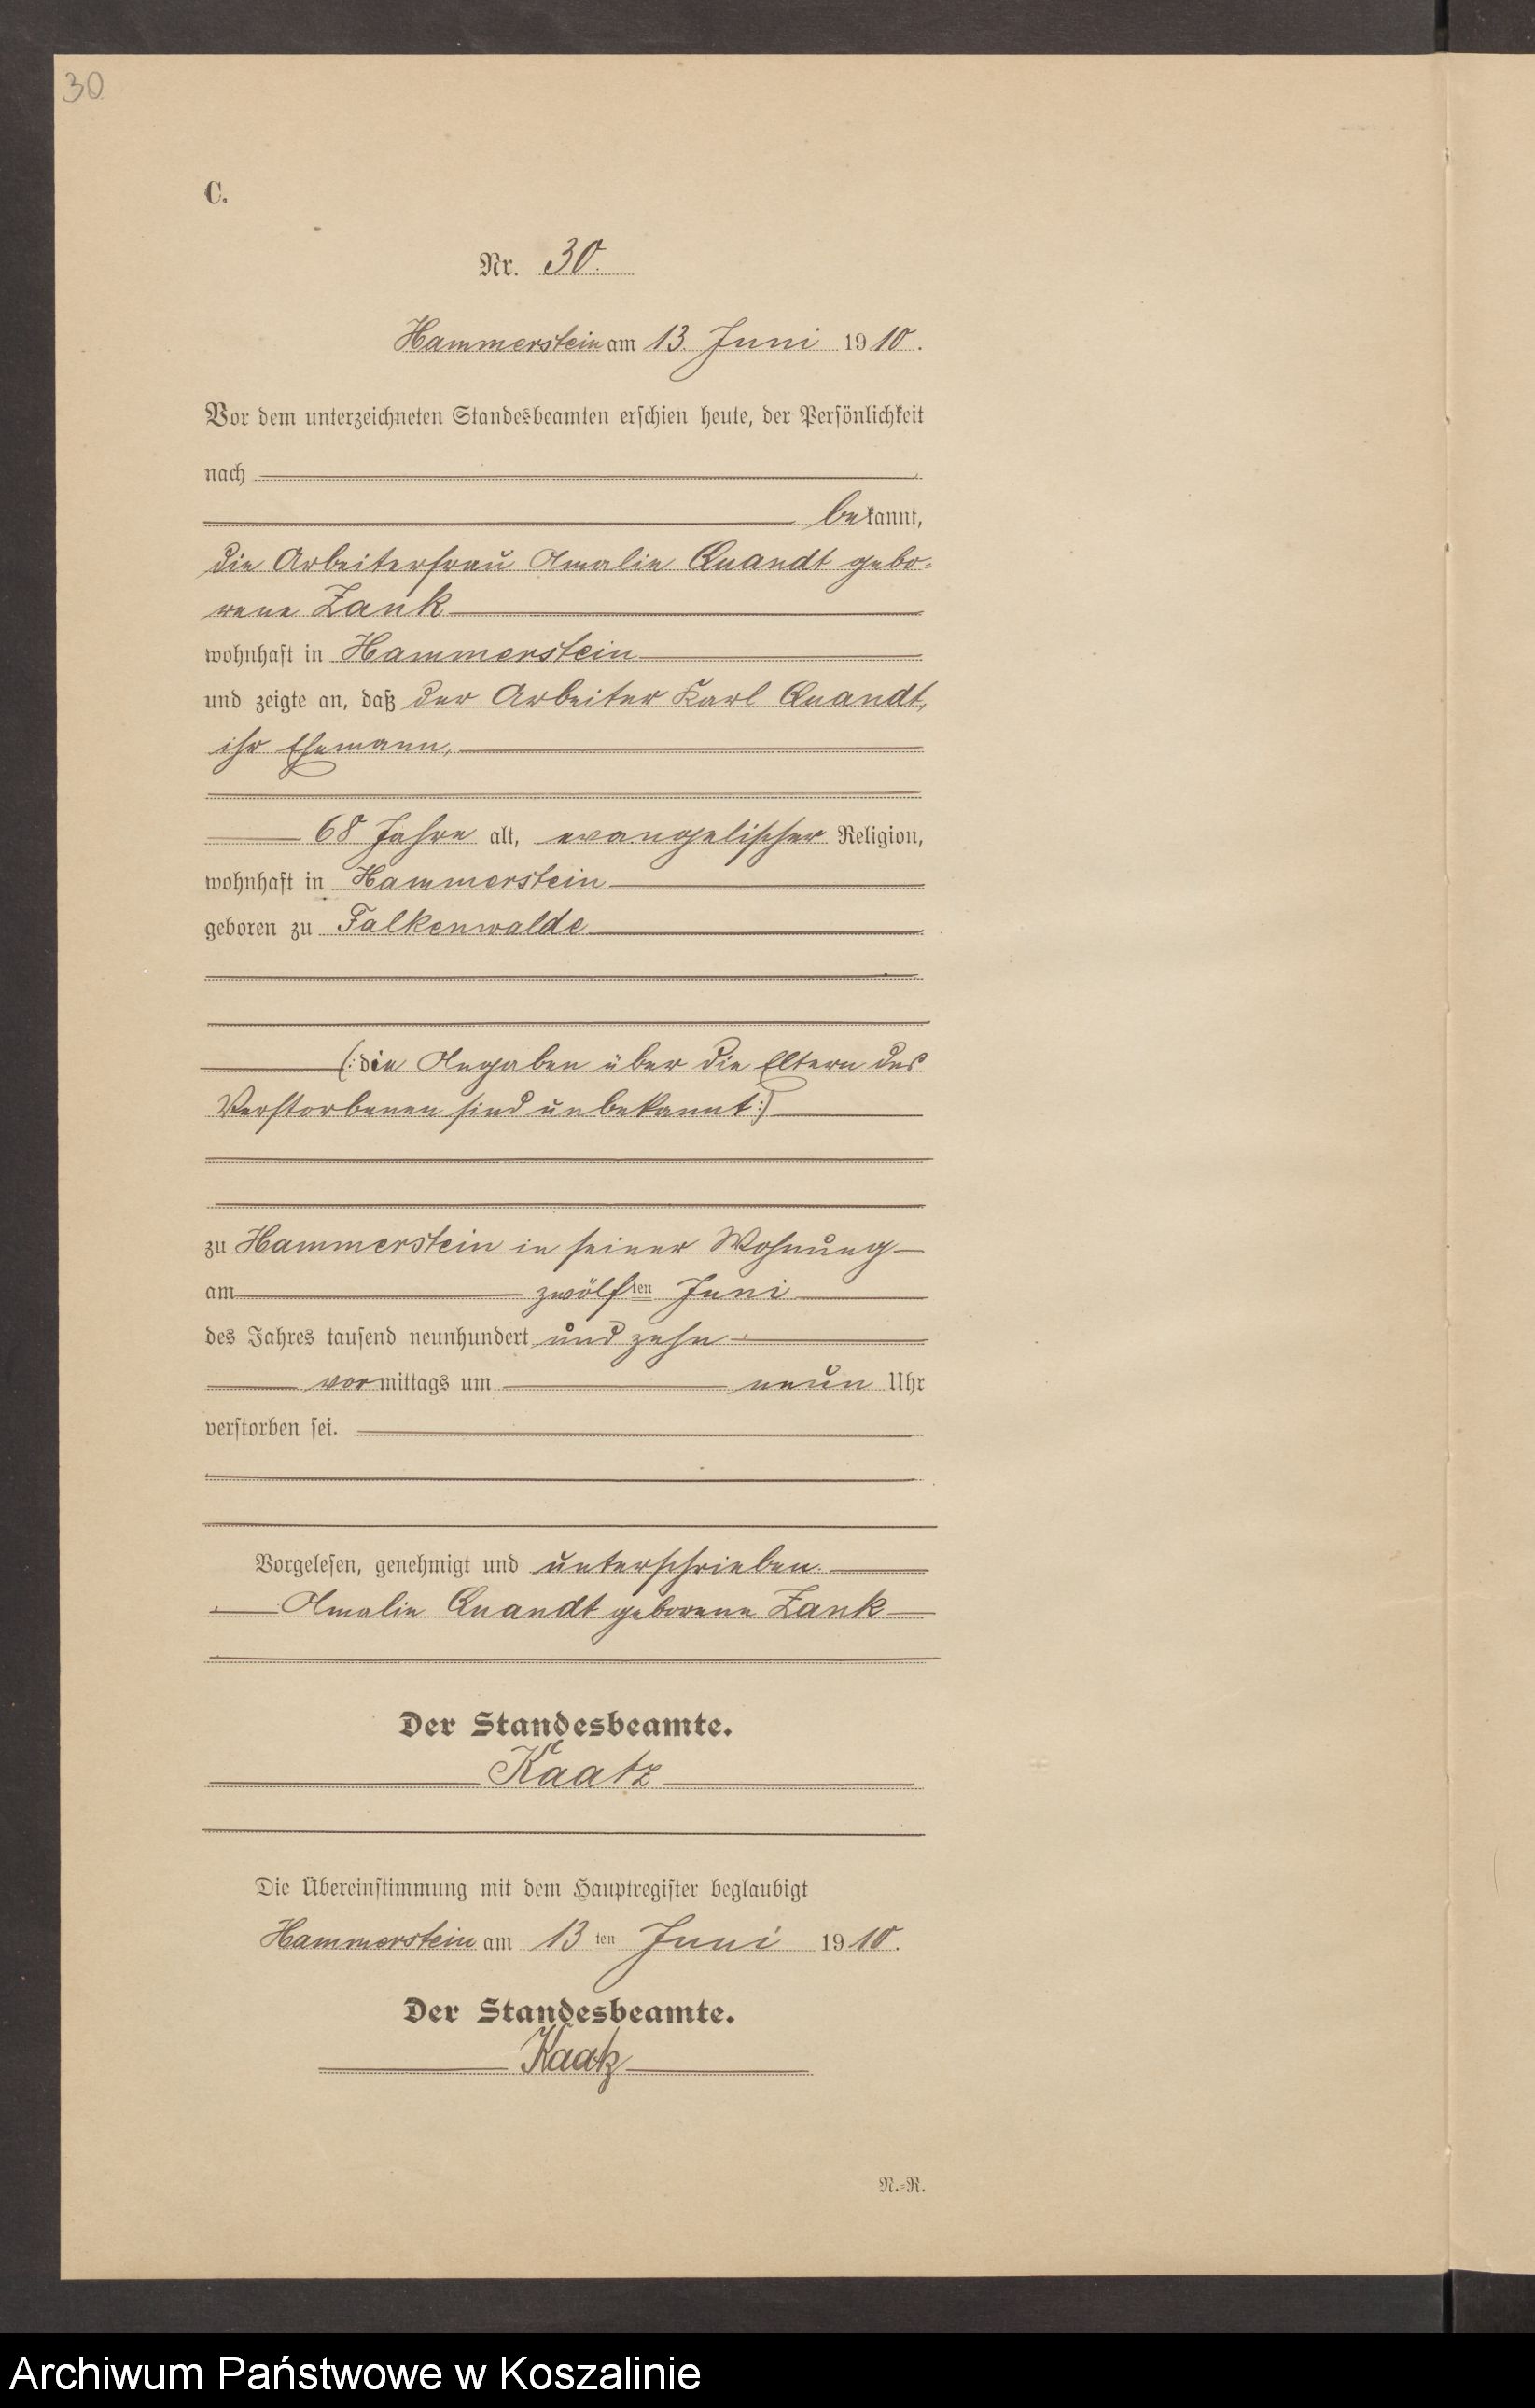 30
C.
Nr. 30.
Hammerstein am 13. Juni 1910.
Vor dem unterzeichneten Standesbeamten erschien heute, der Persönlichkeit
nach
bekannt,
die Arbeiterfrau Amalie Quandt gebo-
rene Zank
wohnhaft in Hammerstein
und zeigte an, daß der Arbeiter Karl Quandt,
ihr Ehemann,
68 Jahre alt, evangelischer Religion,
wohnhaft in Hammerstein
geboren zu Falkenwalde
(: die Angaben über die Eltern des
Verstorbenen sind unbekannt :)
zu Hammerstein in seiner Wohnung
am zwölften Juni
des Jahres tausend neunhundert und zehn
vormittags um neun Uhr
verstorben sei.
Vorgelesen, genehmigt und unterschrieben.
Amalie Quandt geborene Zank
Der Standesbeamte.
Kaatz
Die Übereinstimmung mit dem Hauptregister beglaubigt
Hammerstein am 13ten Juni 1910.
Der Standesbeamte.
Kaatz
N.-R.
Archiwum Państwowe w Koszalinie